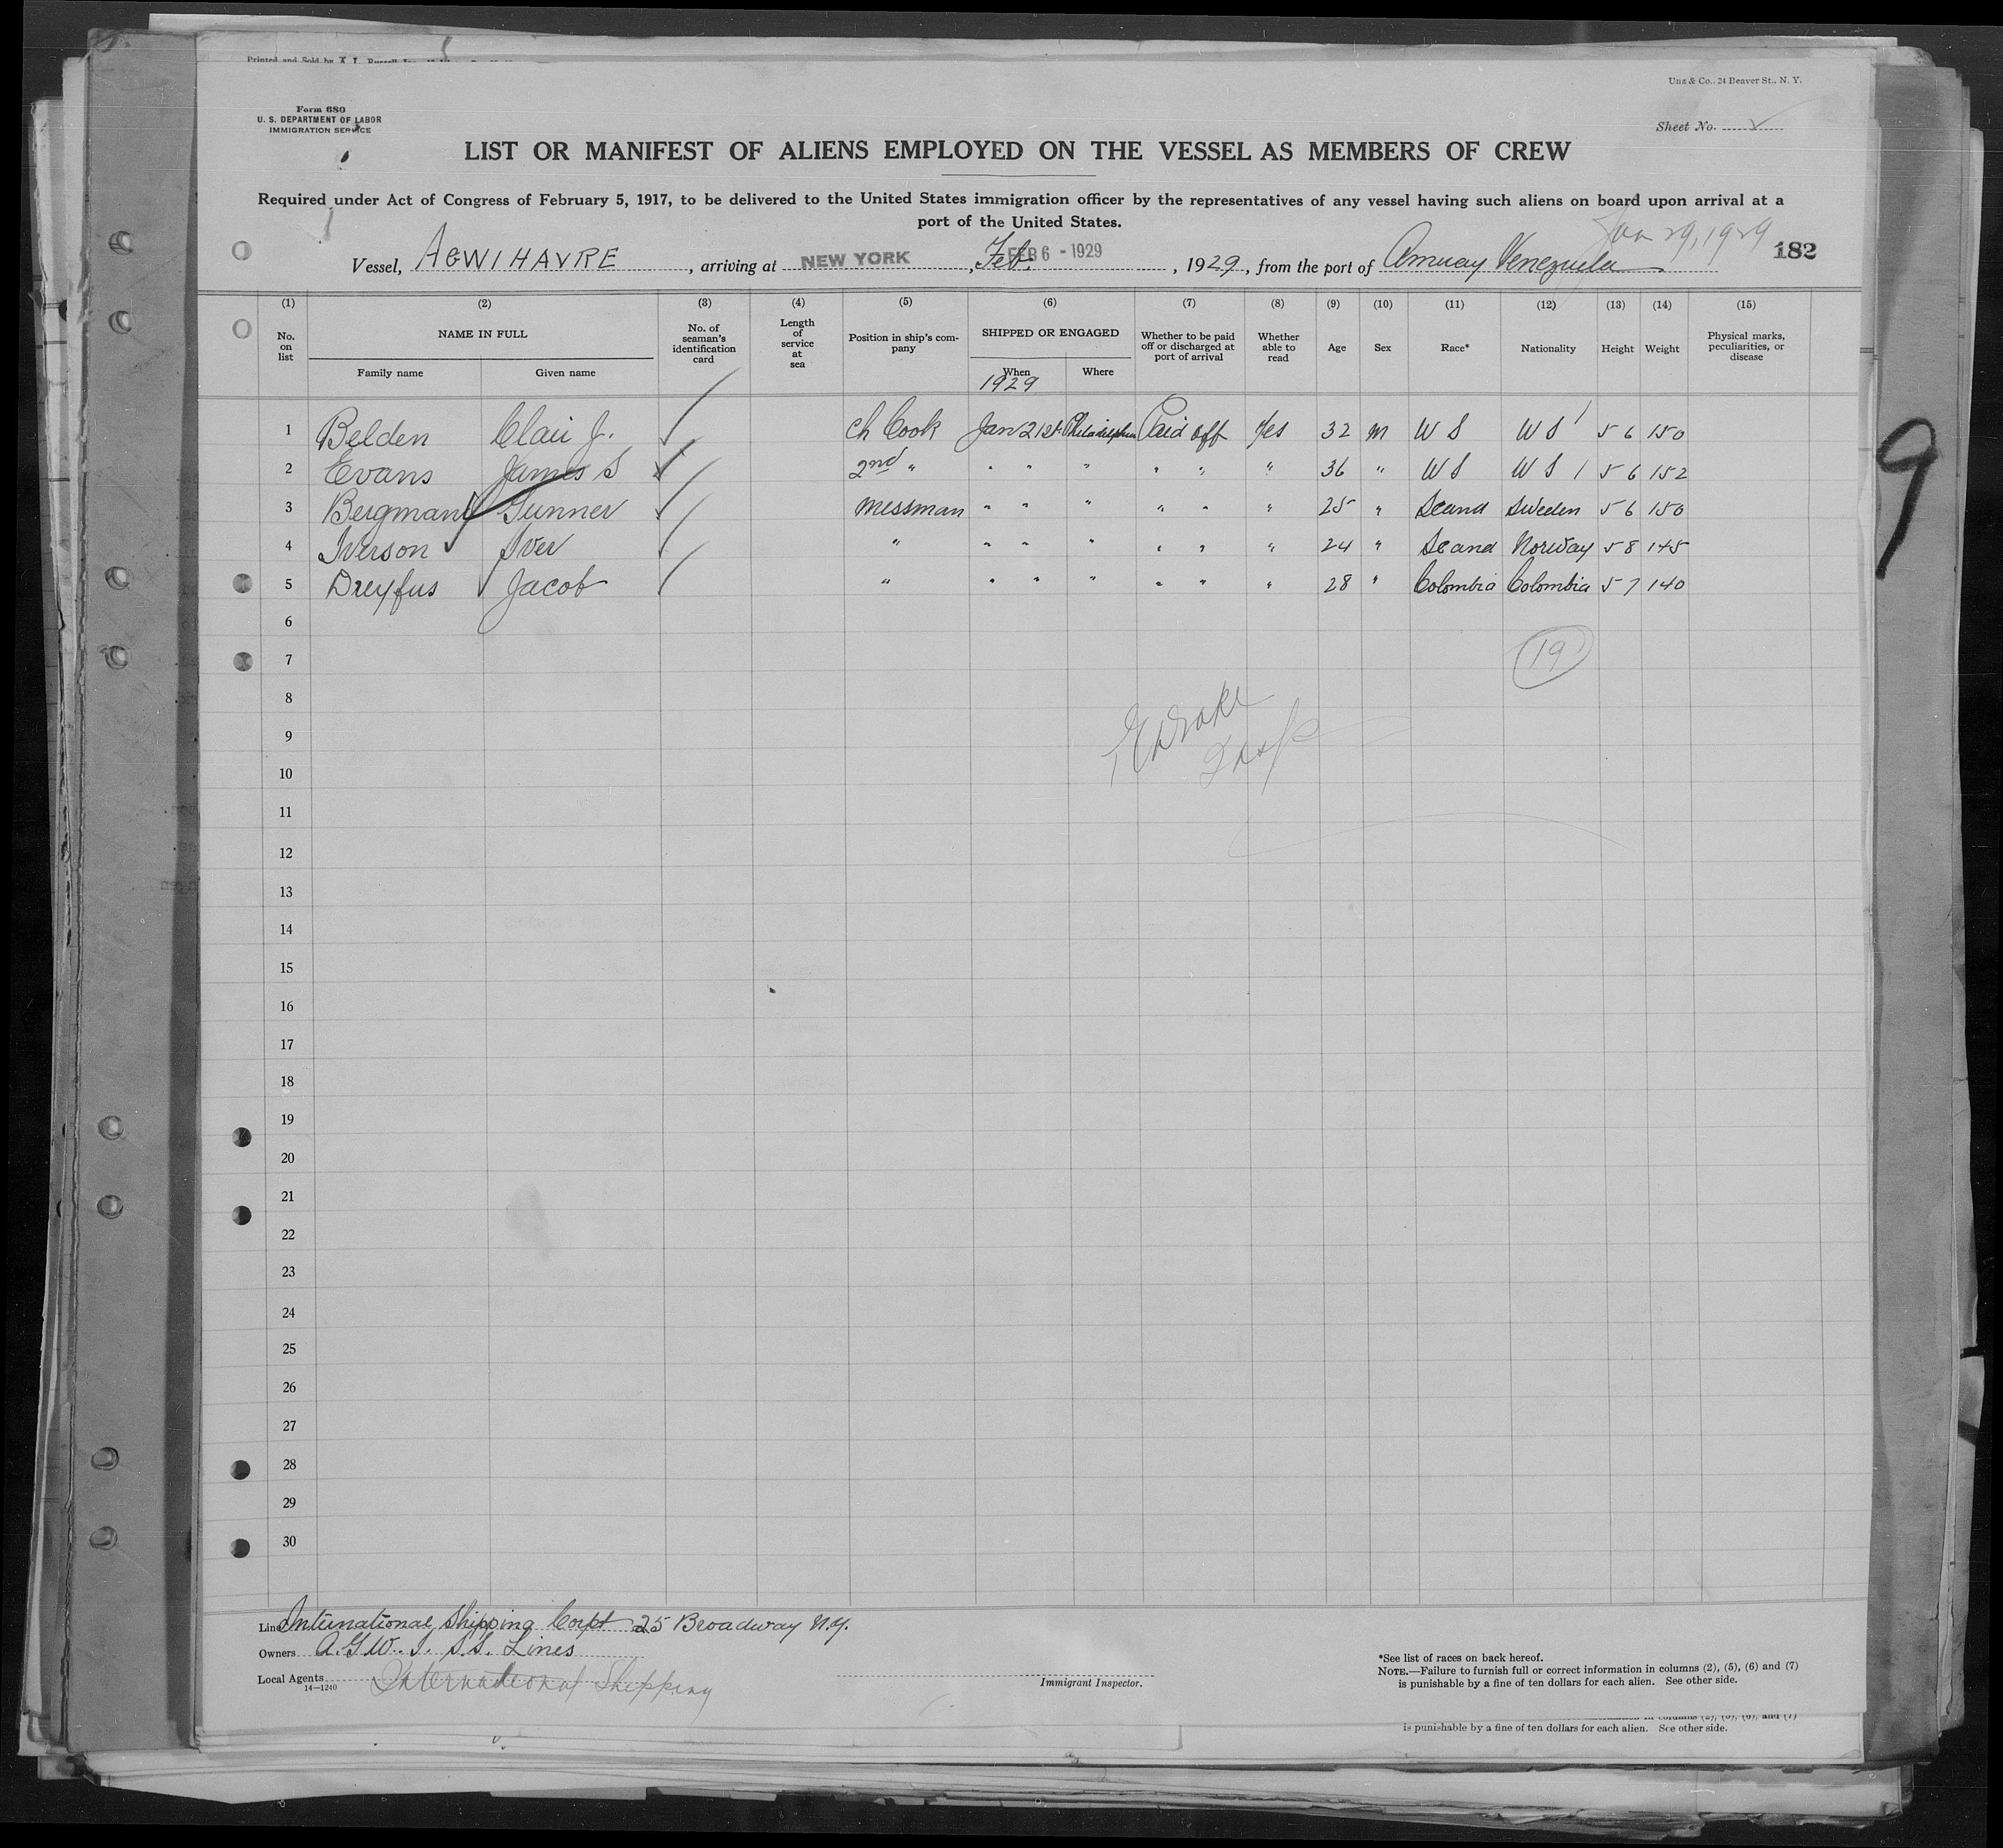 Printed and Sold by
Unz & Co., 24 Beaver St., N. Y.
Form 680
U. S. DEPARTMENT OF LABOR
IMMIGRATION SERVICE
Sheet No.
LIST OR MANIFEST OF ALIENS EMPLOYED ON THE VESSEL AS MEMBERS OF CREW
Required under Act of Congress of February 5, 1917, to be delivered to the United States immigration officer by the representatives of any vessel having such aliens on board upon arrival at a
port of the United States.
Jan 29, 1929
Vessel, AGWIHAVRE, arriving at NEW YORK, Feb. FEB 6 - 1929, 1929, from the port of Amuay Venezuela 182
(1) (2) (3) (4) (5) (6) (7) (8) (9) (10) (11) (12) (13) (14) (15)
No. on list NAME IN FULL Family name Given name No. of seaman's identification card Length of service at sea Position in ship's company SHIPPED OR ENGAGED When 1929 Where Whether to be paid off or discharged at port of arrival Whether able to read Age Sex Race* Nationality Height Weight Physical marks, peculiarities, or disease
1 Belden Clair J. Ch Cook Jan 21st Philadelphia Paid off Yes 32 M U S U S 5 6 150
2 Evans James S 2nd " " " " " " " 36 " U S U S 5 6 152
3 Bergman Gunner Messman " " " " " " 25 " Scand Sweden 5 6 150
4 Iverson Iver " " " " " " " 24 " Scand Norway 5 8 145
5 Dreyfus Jacob " " " " " " " 28 " Colombia Colombia 5 7 140
6
7 19
8
9
10
11
12
13
14
15
16
17
18
19
20
21
22
23
24
25
26
27
28
29
30
9
Line International Shipping Corpt 25 Broadway N.Y.
Owners A.G.W.I. S.S. Lines
Local Agents International Shipping
14—1240
Immigrant Inspector.
*See list of races on back hereof.
NOTE.—Failure to furnish full or correct information in columns (2), (5), (6) and (7)
is punishable by a fine of ten dollars for each alien. See other side.
in columns (2), (5), (6), and (7)
is punishable by a fine of ten dollars for each alien. See other side.